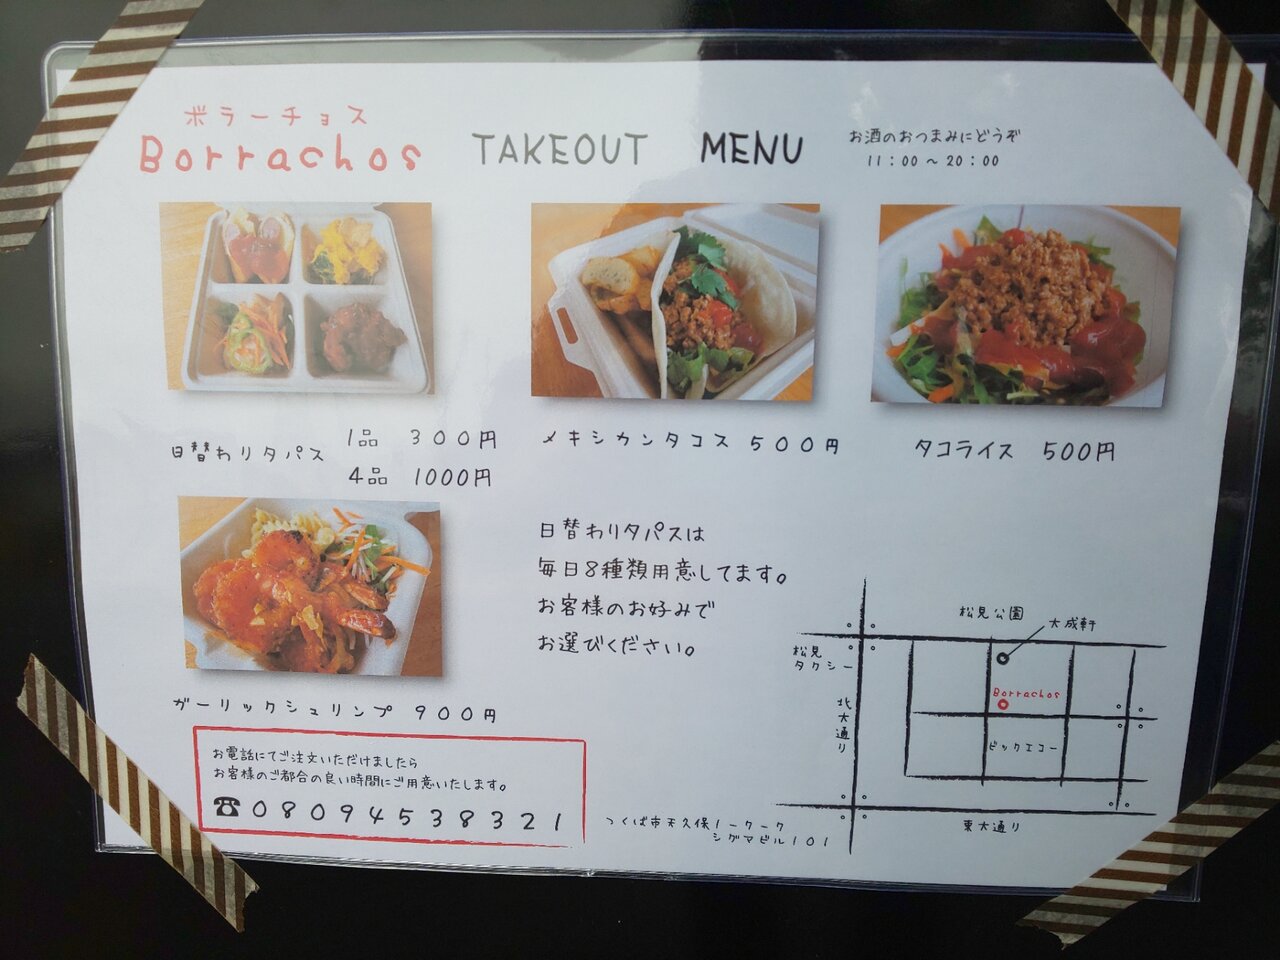 ボラーチョス
Borrachos
TAKEOUT MENU
お酒のおつまみにどうぞ
11:00～20:00
日替わりタパス
1品 300円
4品 1000円
メキシカンタコス 500円
タコライス 500円
ガーリックシュリンプ 900円
日替わりタパスは
毎日8種類用意してます。
お客様のお好みで
お選びください。
お電話にてご注文いただけましたら
お客様のご都合の良い時間にご用意いたします。
☎08094538321
つくば市天久保1-7-7
シグマビル101
松見公園
大成軒
松見
タクシー
北大通り
Borrachos
ビックエコー
東大通り